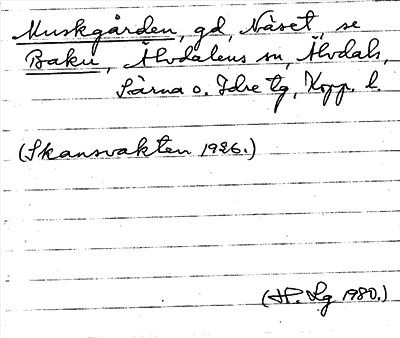 Muskgården, gd, Näset, se
Baku, Älvdalens sn, Älvdals,
Särna o. Idre tg, Kopp. l.
(Skansvakten 1926.)
(H. Lg 1980.)